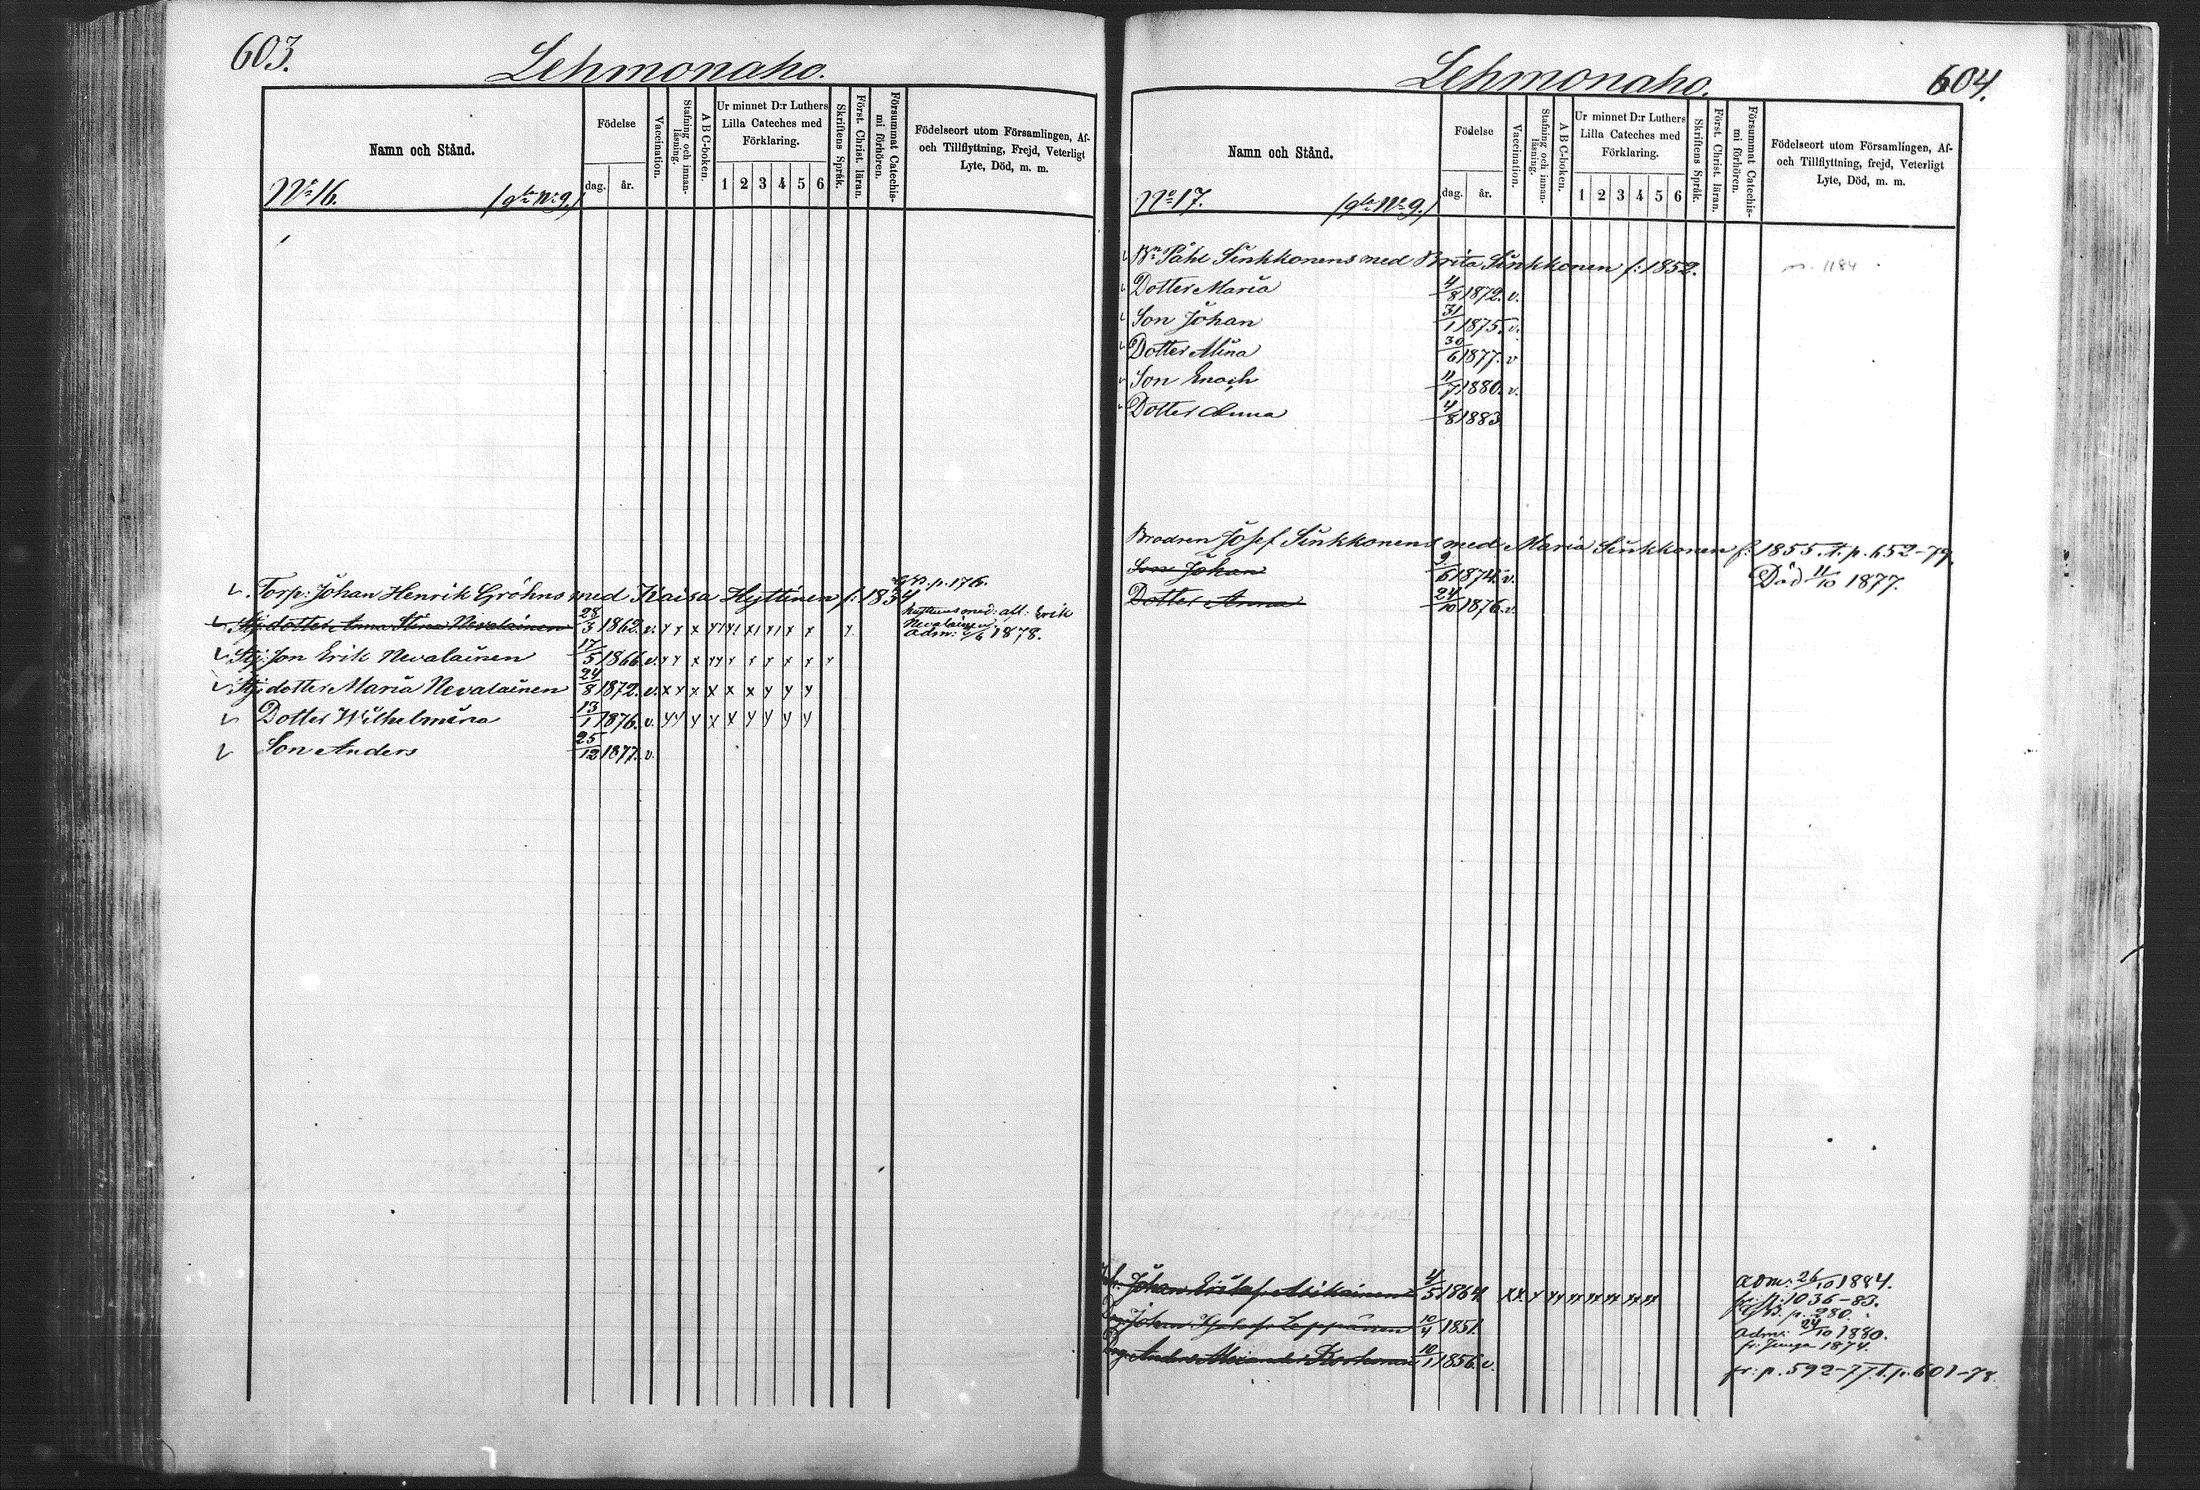 603.
Lehmonaho.
Namn och Stånd.
Födelse
dag.
år.
Vaccination.
Stafning och innan-läsning.
A B C-boken.
Ur minnet D:r Luthers Lilla Cateches med Förklaring.
1 2 3 4 5 6
Skriftens Språk.
Först. Christ. läran.
Försummat Catechismi förhören.
Födelseort utom Församlingen, Af- och Tillflyttning, Frejd, Veterligt Lyte, Död, m. m.
No 16. (gla No 9.)
p. 176.
Torp: Johan Henrik Gröhns med Kaisa Hyttinen f: 1834
Stj: dotter Anna Stina Nevalainen 28/3 1862. v.
Erik Nevalainen
adm: 1878.
Stj: Son Erik Nevalainen 17/5 1866. v.
Stj: dotter Maria Nevalainen 24/8 1872. v.
Dotter Wilhelmina 13/1 1876. v.
Son Anders 25/12 1877. v.
604.
Lehmonaho.
Namn och Stånd.
Födelse
dag.
år.
Vaccination.
Stafning och innan-läsning.
A B C-boken.
Ur minnet D:r Luthers Lilla Cateches med Förklaring.
1 2 3 4 5 6
Skriftens Språk.
Först. Christ. läran.
Försummat Catechismi förhören.
Födelseort utom Församlingen, Af- och Tillflyttning, frejd, Veterligt Lyte, Död, m. m.
No 17. (gla No 9.)
Bn Påhl Sinkkonens med Brita Sinkkonen f: 1852. 1184
Dotter Maria 4/8 1872. v.
Son Johan 31/1 1875. v.
Dotter Alina 30/6 1877. v
Son Enoch 11/7 1880. v.
Dotter Anna 4/8 1883
Brodren Josef Sinkkonens med Maria Sinkkonen f: 1855. t. p. 652-79.
Son Johan 9/6 1874. v. Död 11/10 1877.
Dotter Anna 24/10 1876. v.
Johan Gustaf Asikainen 4/5 1864. adm: 26/10 1884.
fr: p. 1036-83.
p. 280.
Johan Leppänen 10/4 1851. adm: 24/10 1880.
1874.
Anders Alexander Korhonen 10/1 1856. v. fr: p. 592-77. t. p. 601-78.